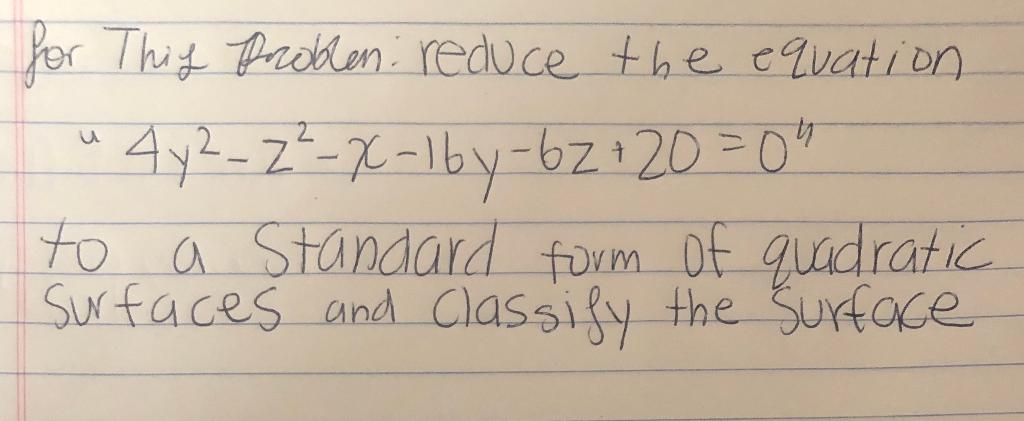 for This Problem: reduce the equation
"4y²-z²-x-16y-6z+20=0"
to a Standard form of quadratic
Surfaces and Classify the Surface